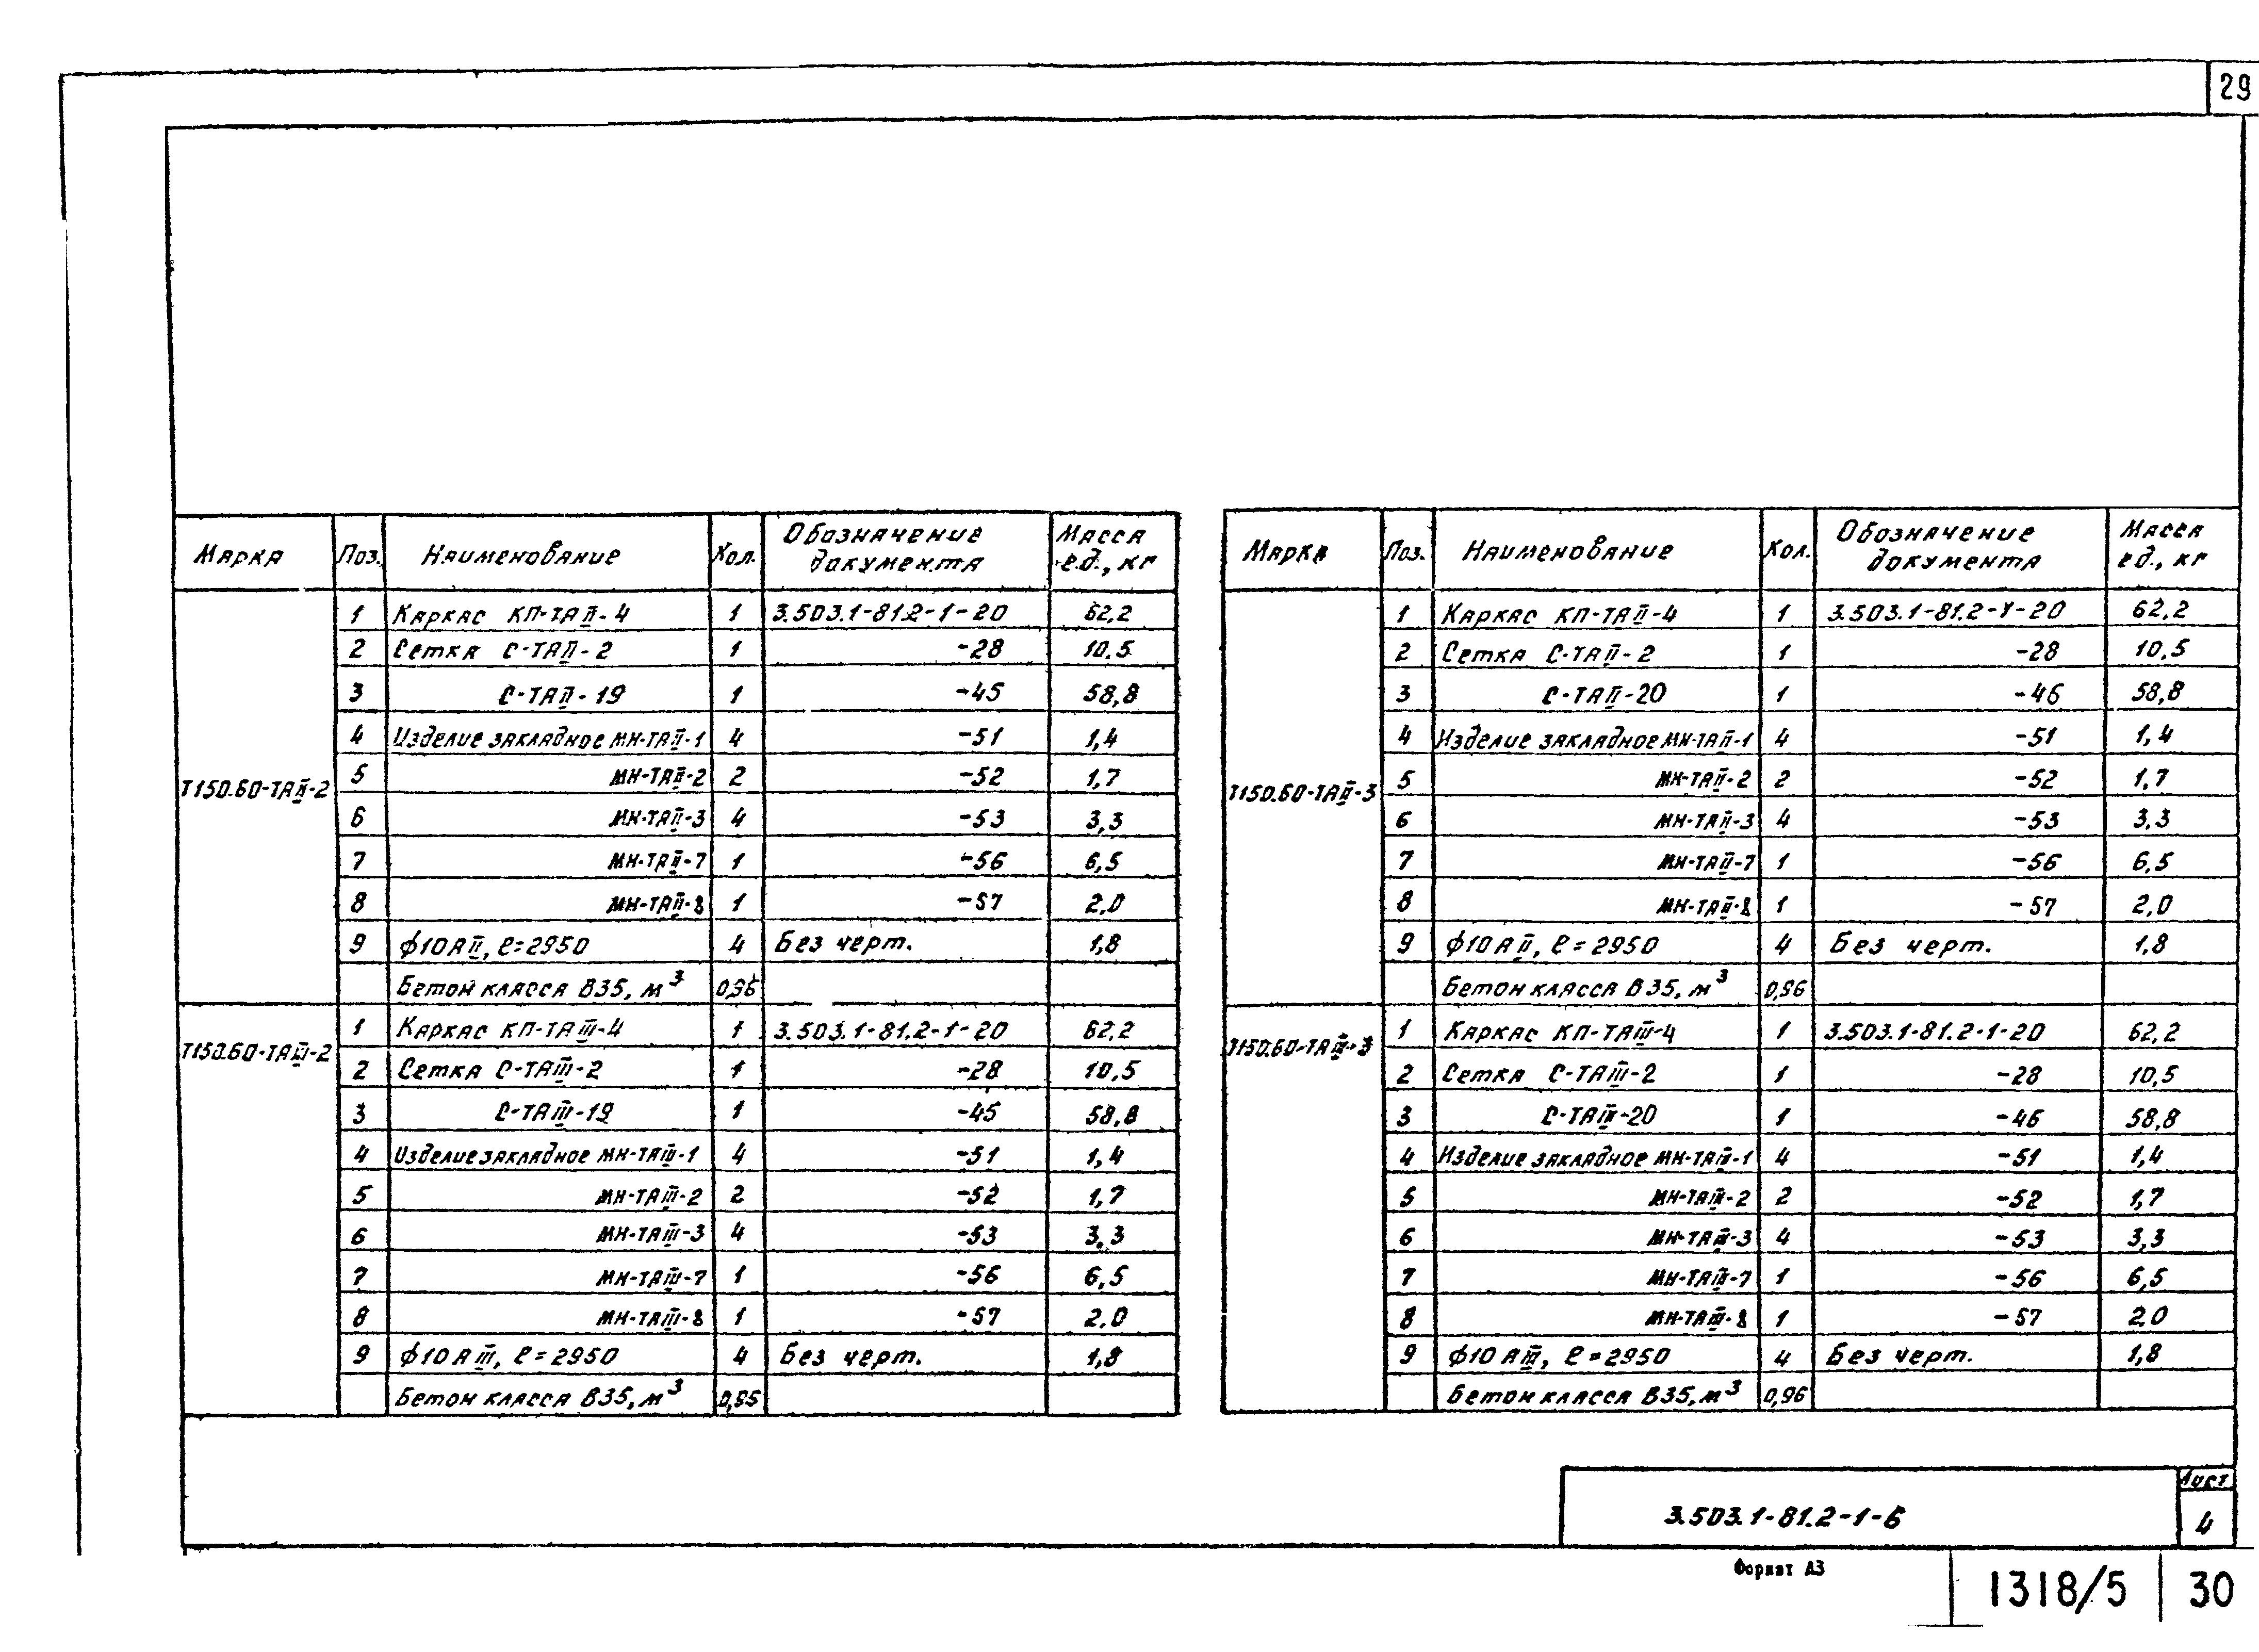 29
Марка Поз. Наименование Кол. Обозначение документа Масса ед., кг
Т150.60-ТАII-2
1 Каркас КП-ТАII-4 1 3.503.1-81.2-1-20 62,2
2 Сетка С-ТАII-2 1 -28 10.5
3 С-ТАII-19 1 -45 58,8
4 Изделие закладное МН-ТАII-1 4 -51 1,4
5 МН-ТАII-2 2 -52 1,7
6 МН-ТАII-3 4 -53 3,3
7 МН-ТАII-7 1 -56 6,5
8 МН-ТАII-8 1 -57 2,0
9 ф10АII, ℓ=2950 4 Без черт. 1,8
Бетон класса В35, м³ 0,96
Т150.60-ТАIII-2
1 Каркас КП-ТАIII-4 1 3.503.1-81.2-1-20 62,2
2 Сетка С-ТАIII-2 1 -28 10,5
3 С-ТАIII-19 1 -45 58,8
4 Изделие закладное МН-ТАIII-1 4 -51 1,4
5 МН-ТАIII-2 2 -52 1,7
6 МН-ТАIII-3 4 -53 3.3
7 МН-ТАIII-7 1 -56 6,5
8 МН-ТАIII-8 1 -57 2,0
9 ф10АIII, ℓ=2950 4 Без черт. 1,8
Бетон класса В35, м³
Марка Поз. Наименование Кол. Обозначение документа Масса ед., кг
Т150.60-ТАII-3
1 Каркас КП-ТАII-4 1 3.503.1-81.2-1-20 62,2
2 Сетка С-ТАII-2 1 -28 10,5
3 С-ТАII-20 1 -46 58,8
4 Изделие закладное МН-ТАII-1 4 -51 1,4
5 МН-ТАII-2 2 -52 1,7
6 МН-ТАII-3 4 -53 3,3
7 МН-ТАII-7 1 -56 6,5
8 МН-ТАII-8 1 -57 2,0
9 ф10АII, ℓ=2950 4 Без черт. 1,8
Бетон класса В35, м³ 0,96
Т150.60-ТАIII-3
1 Каркас КП-ТАIII-4 1 3.503.1-81.2-1-20 62,2
2 Сетка С-ТАIII-2 1 -28 10,5
3 С-ТАIII-20 1 -46 58,8
4 Изделие закладное МН-ТАIII-1 4 -51 1,4
5 МН-ТАIII-2 2 -52 1,7
6 МН-ТАIII-3 4 -53 3,3
7 МН-ТАIII-7 1 -56 6,5
8 МН-ТАIII-8 1 -57 2,0
9 ф10АIII, ℓ=2950 4 Без черт. 1,8
Бетон класса В35, м³ 0,96
3.503.1-81.2-1-6
Лист
4
Формат А3
1318/5 30